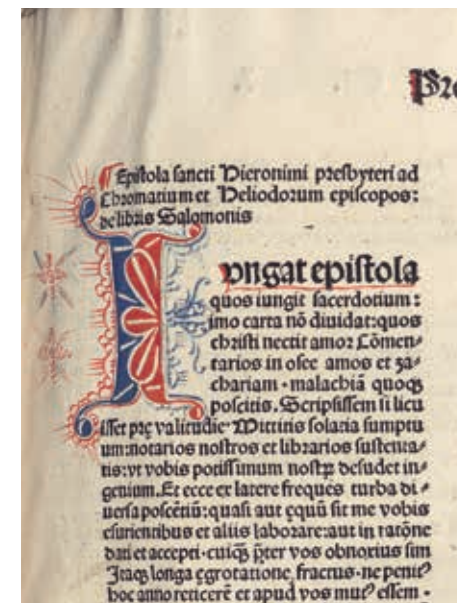 Pro
¶ Epistola sancti Hieronimi presbyteri ad
Chromatium et Heliodorum episcopos:
de libris Salomonis
Iungat epistola
quos iungit sacerdotium:
imo carta nō diuidat: quos
christi nectit amor. Cōmen⸗
tarios in osee amos et za⸗
chariam · malachiā quoqꝫ
poscitis. Scripsissem si licu
isset prę valitudīe· Mittitis solatia sumptu
um: notarios nostros et librarios sustenta⸗
tis: vt vobis potissimum nostꝝ desudet in⸗
genium. Et ecce ex latere frequēs turba di⸗
uersa poscētiū: quasi aut ęquū sit me vobis
esurientibus et aliis laborare: aut in ratōne
dati et accepti · cuiqꝫ p̄ter vos obnoxius sim
Itaqꝫ longa ęgrotatione fractus · ne penitꝰ
hoc anno reticerē et apud vos mutꝰ essem ·